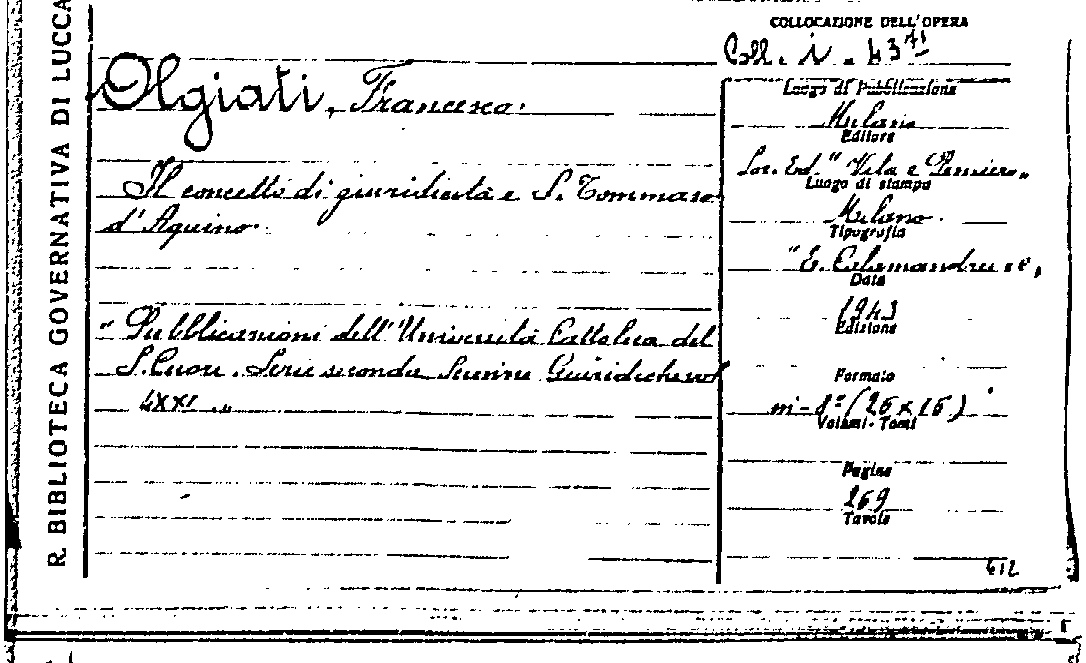 R. BIBLIOTECA GOVERNATIVA DI LUCCA
COLLOCAZIONE DELL'OPERA
Coll. i. 43 71
Olgiati, Francesco.
Il concetto di giuridicità e S. Tommaso
d'Aquino.
"Pubblicazioni dell'Università Cattolica del
S. Cuore. Serie seconda Scienze Giuridiche vol
LXXI."
Luogo di Pubblicazione
Milano
Editore
Soc. Ed. "Vita e Pensiero"
Luogo di stampa
Milano.
Tipografia
"E. Calamandrei e"
Data
1943
Edizione
Formato
in-8º (26 x 16)
Volumi-Tomi
Pagine
269
Tavole
612